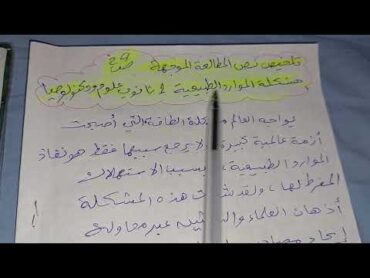 تلخيص نص المطالعة الموجهة ص
مشكلة الموارد الطبيعية 2 ثانوي علوم وتكنولوجيا
يواجه العالم مشكلة الطاقة التي أصبحت
أزمة عالمية كبيرة لا يرجع سببها فقط هو نفاذ
الموارد الطبيعية، بسبب الاستهلاك
المفرط لها، ولقد شغلت هذه المشكلة
أذهان العلماء عبر محاولة
إيجاد